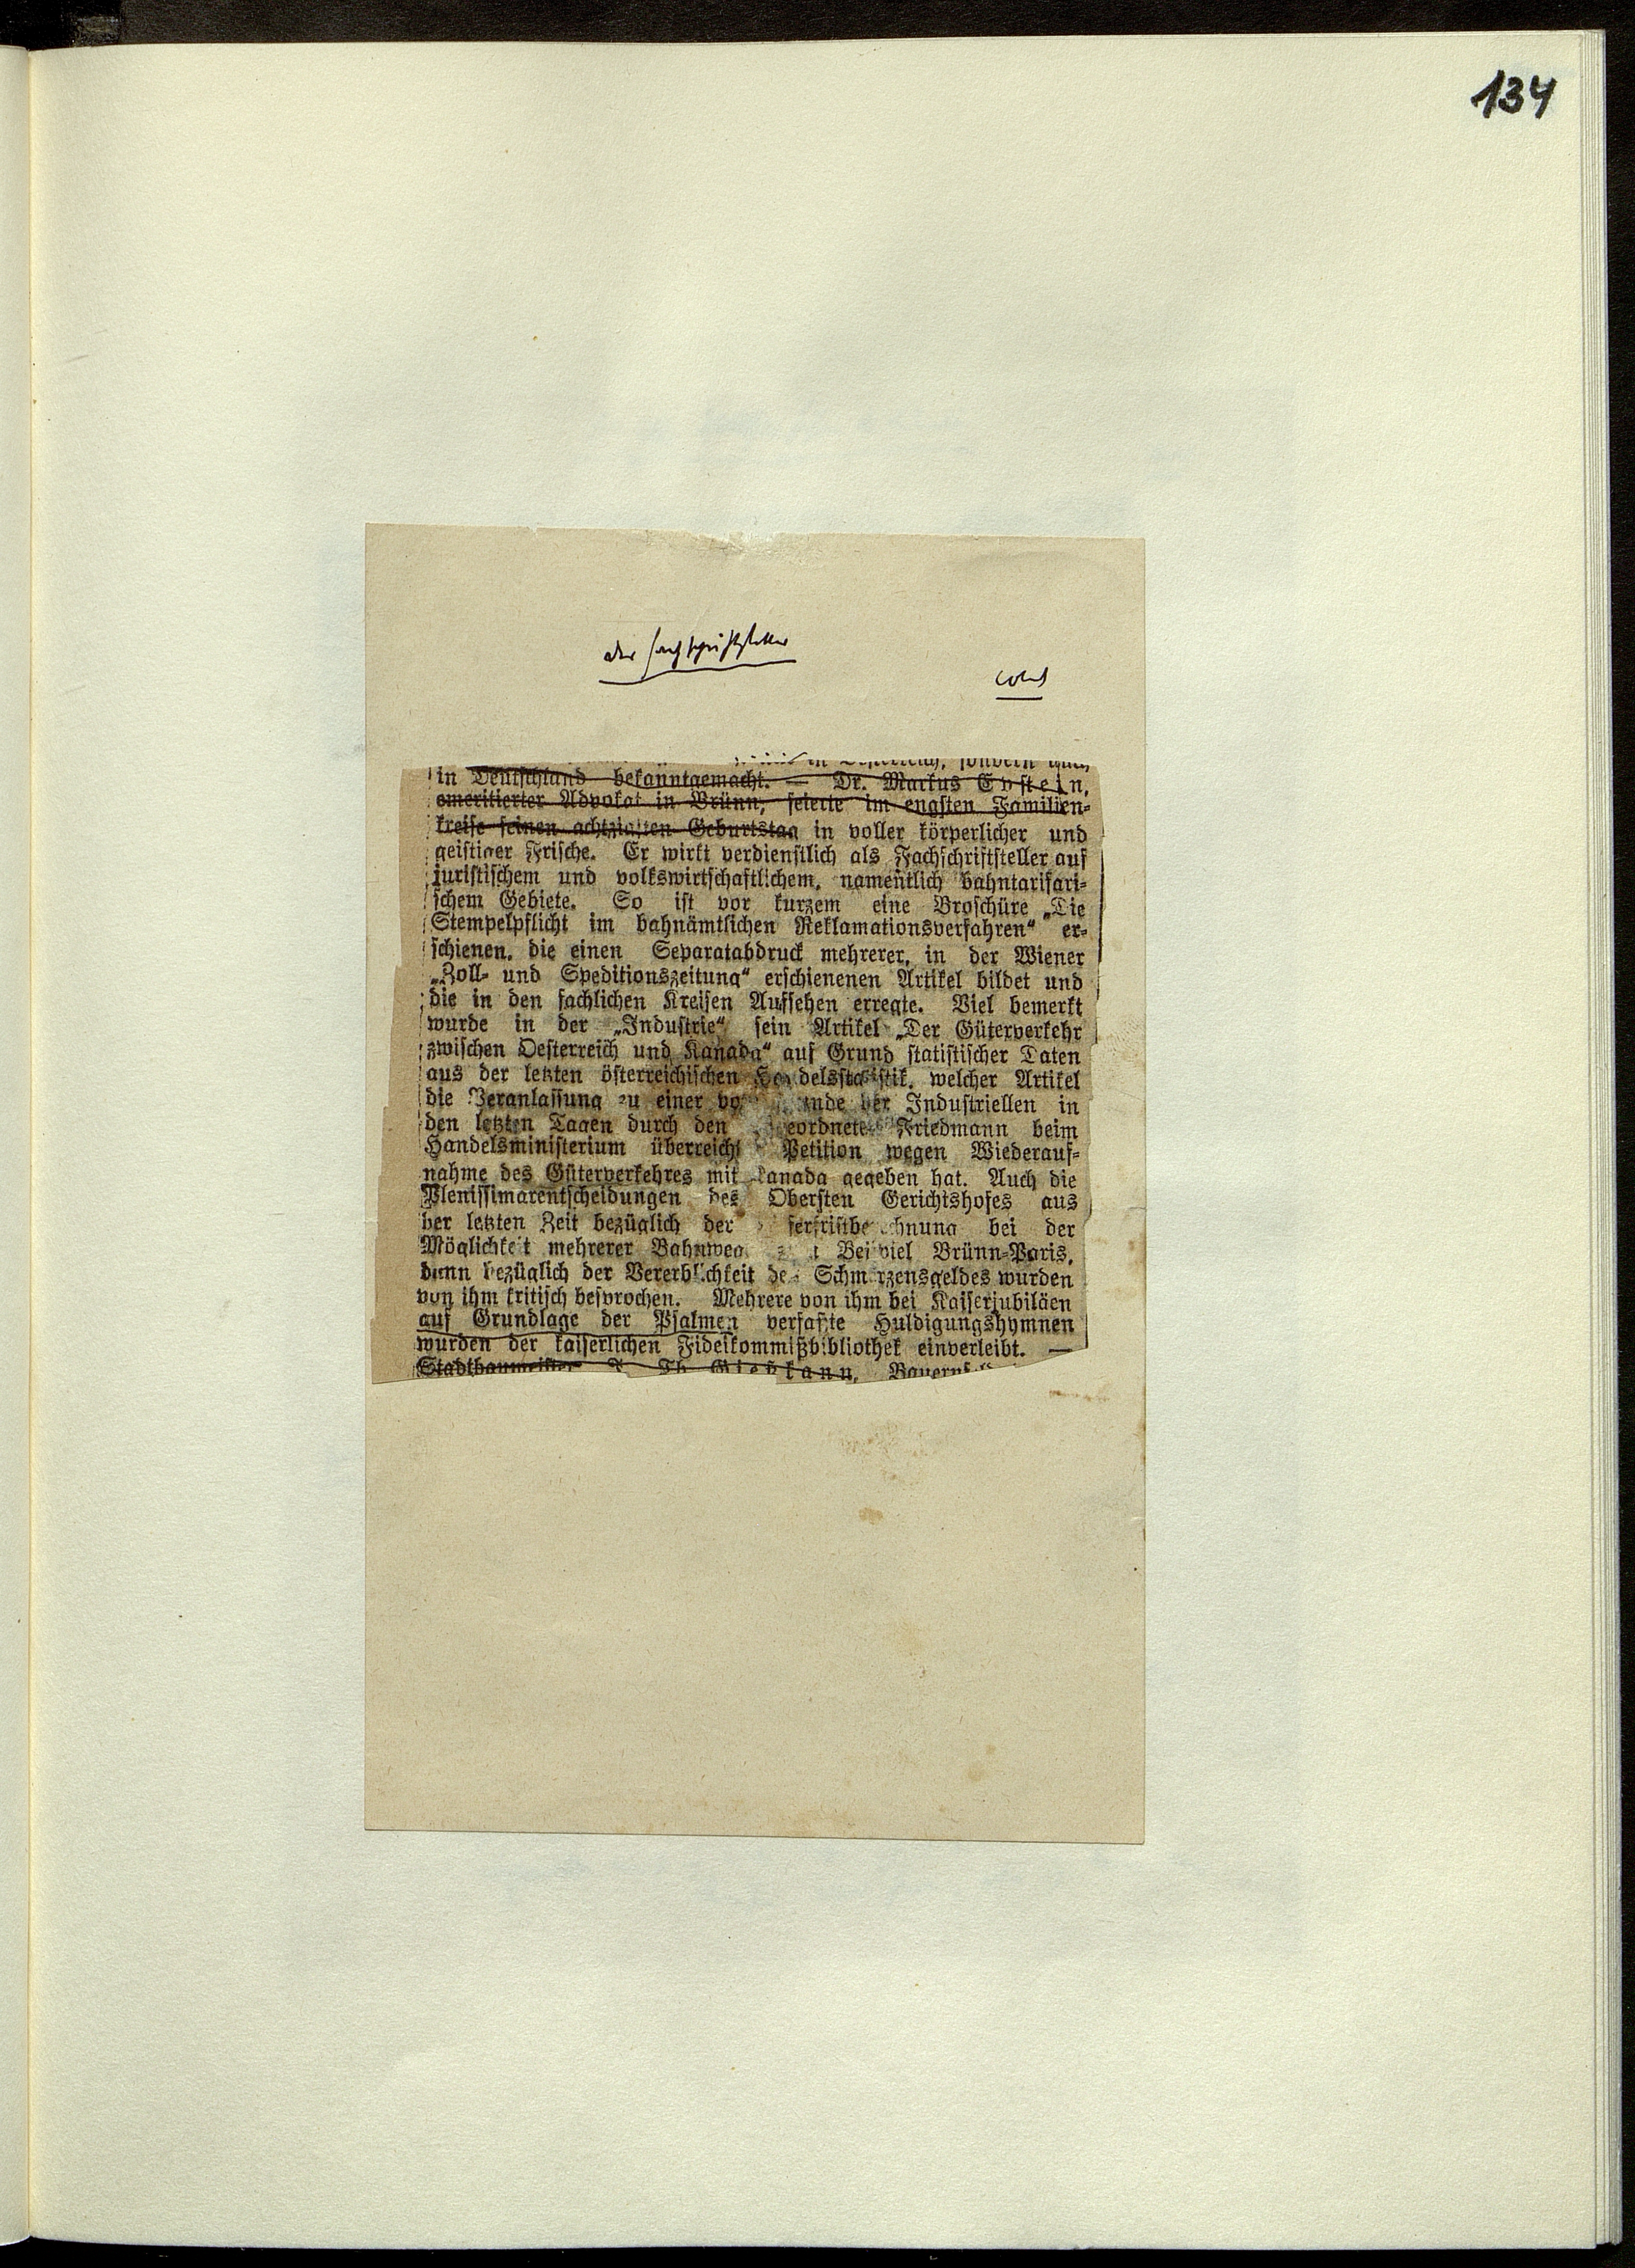 134
Der Fachschriftsteller
in Oesterreich, sondern auch
in Deutschland bekanntgemacht. — Dr. Markus Epstein,
emeritierter Advokat in Brünn, feierte im engsten Familien-
kreise seinen achtzigsten Geburtstag in voller körperlicher und
geistiger Frische. Er wirkt verdienstlich als Fachschriftsteller auf
juristischem und volkswirtschaftlichem, namentlich bahntarifari-
schem Gebiete. So ist vor kurzem eine Broschüre „Die
Stempelpflicht im bahnämtlichen Reklamationsverfahren“ er-
schienen, die einen Separatabdruck mehrerer, in der Wiener
„Zoll- und Speditionszeitung“ erschienenen Artikel bildet und
die in den fachlichen Kreisen Aufsehen erregte. Viel bemerkt
wurde in der „Industrie“ sein Artikel „Der Güterverkehr
zwischen Oesterreich und Kanada“ auf Grund statistischer Daten
aus der letzten österreichischen Handelsstatistik, welcher Artikel
die Veranlassung zu einer der Industriellen in
den letzten Tagen durch den Friedmann beim
Handelsministerium überreicht Petition wegen Wiederauf-
nahme des Güterverkehres mit Kanada gegeben hat. Auch die
Plenissimarentscheidungen des Obersten Gerichtshofes aus
der letzten Zeit bezüglich der bei der
Möglichkeit mehrerer Bahnweg Beispiel Brünn-Paris,
dann bezüglich der Vererblichkeit des Schmerzensgeldes wurden
von ihm kritisch besprochen. Mehrere von ihm bei Kaiserjubiläen
auf Grundlage der Psalmen verfaßte Huldigungshymnen
wurden der kaiserlichen Fideikommißbibliothek einverleibt. —
Stadtbaumeister